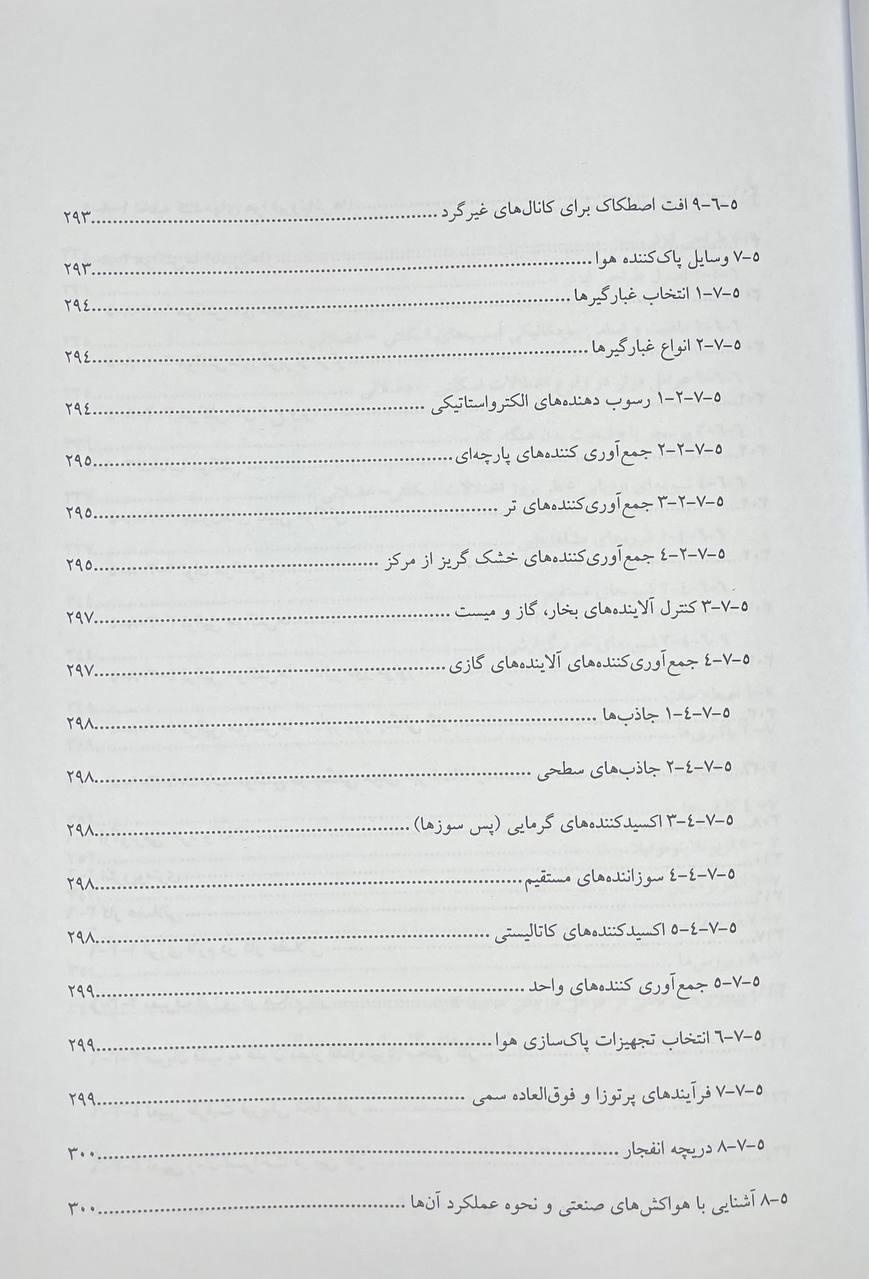 ۵-۶-۹ افت اصطکاک برای کانال‌های غیرگرد ........ ۲۹۳
۵-۷ وسایل پاک‌کننده هوا ........ ۲۹۳
۵-۷-۱ انتخاب غبارگیرها ........ ۲۹۴
۵-۷-۲ انواع غبارگیرها ........ ۲۹۴
۵-۷-۲-۱ رسوب دهنده‌های الکترواستاتیکی ........ ۲۹۴
۵-۷-۲-۲ جمع‌آوری کننده‌های پارچه‌ای ........ ۲۹۵
۵-۷-۲-۳ جمع‌آوری‌کننده‌های تر ........ ۲۹۵
۵-۷-۲-۴ جمع‌آوری‌کننده‌های خشک گریز از مرکز ........ ۲۹۵
۵-۷-۳ کنترل آلاینده‌های بخار، گاز و میست ........ ۲۹۷
۵-۷-۴ جمع‌آوری‌کننده‌های آلاینده‌های گازی ........ ۲۹۷
۵-۷-۴-۱ جاذب‌ها ........ ۲۹۸
۵-۷-۴-۲ جاذب‌های سطحی ........ ۲۹۸
۵-۷-۴-۳ اکسیدکننده‌های گرمایی (پس سوزها) ........ ۲۹۸
۵-۷-۴-۴ سوزاننده‌های مستقیم ........ ۲۹۸
۵-۷-۴-۵ اکسیدکننده‌های کاتالیستی ........ ۲۹۸
۵-۷-۵ جمع‌آوری کننده‌های واحد ........ ۲۹۹
۵-۷-۶ انتخاب تجهیزات پاک‌سازی هوا ........ ۲۹۹
۵-۷-۷ فرآیندهای پرتوزا و فوق‌العاده سمی ........ ۲۹۹
۵-۷-۸ دریچه انفجار ........ ۳۰۰
۵-۸ آشنایی با هواکش‌های صنعتی و نحوه عملکرد آن‌ها ........ ۳۰۰